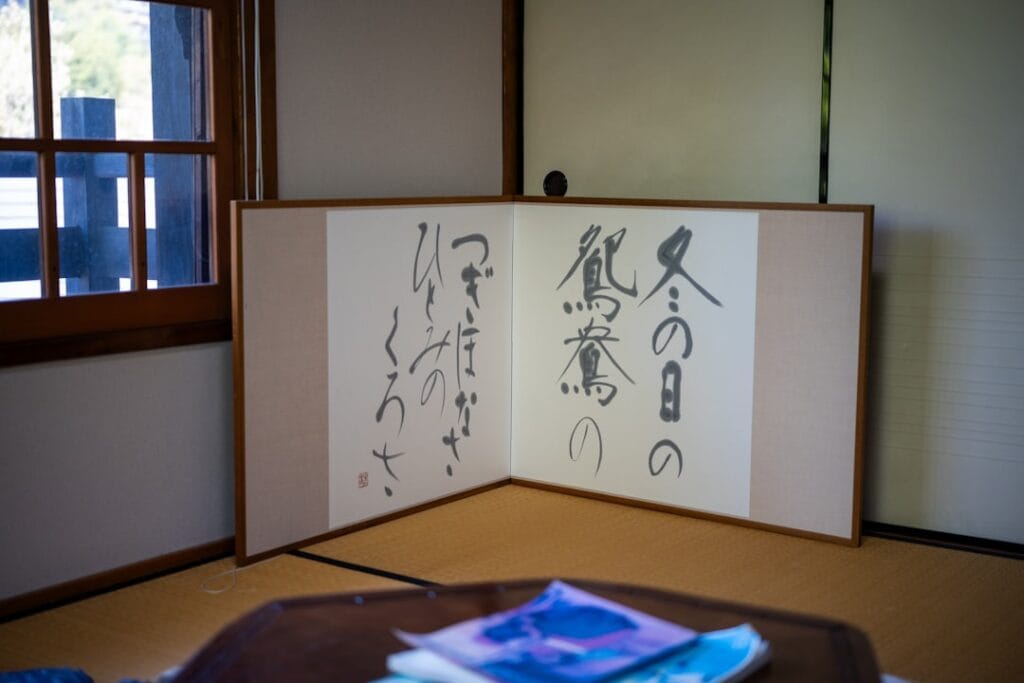 冬の日の
鴛鴦の
つぎほなさ
ひとみの
くろさ